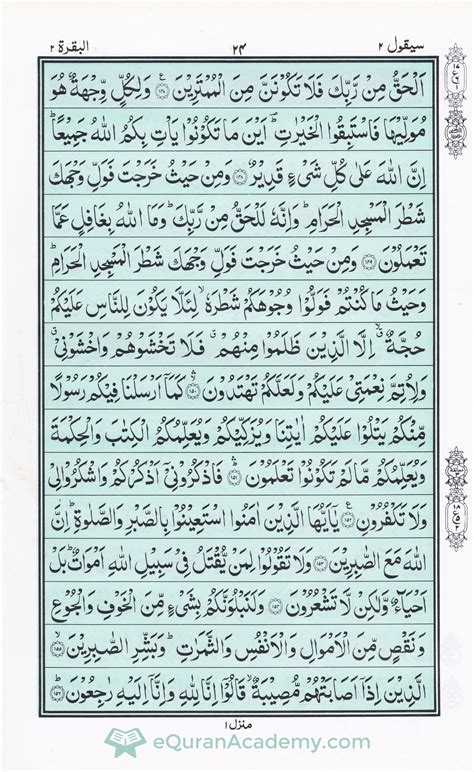 سيقول ٢ ٢٤ البقرة ٢
اَلْحَقُّ مِنْ رَّبِّكَ فَلَا تَكُوْنَنَّ مِنَ الْمُمْتَرِيْنَ ﴿١٤٧﴾ وَلِكُلٍّ وِّجْهَةٌ هُوَ
مُوَلِّيْهَا فَاسْتَبِقُوا الْخَيْرٰتِ ؕ اَيْنَ مَا تَكُوْنُوْا يَاْتِ بِكُمُ اللّٰهُ جَمِيْعًا ؕ
اِنَّ اللّٰهَ عَلٰى كُلِّ شَىْءٍ قَدِيْرٌ ﴿١٤٨﴾ وَمِنْ حَيْثُ خَرَجْتَ فَوَلِّ وَجْهَكَ
شَطْرَ الْمَسْجِدِ الْحَرَامِ ؕ وَاِنَّهٗ لَلْحَقُّ مِنْ رَّبِّكَ ؕ وَمَا اللّٰهُ بِغَافِلٍ عَمَّا
تَعْمَلُوْنَ ﴿١٤٩﴾ وَمِنْ حَيْثُ خَرَجْتَ فَوَلِّ وَجْهَكَ شَطْرَ الْمَسْجِدِ الْحَرَامِ ؕ
وَحَيْثُ مَا كُنْتُمْ فَوَلُّوْا وُجُوْهَكُمْ شَطْرَهٗ ۙ لِئَلَّا يَكُوْنَ لِلنَّاسِ عَلَيْكُمْ
حُجَّةٌ ۙ اِلَّا الَّذِيْنَ ظَلَمُوْا مِنْهُمْ ۗ فَلَا تَخْشَوْهُمْ وَاخْشَوْنِىْ ۗ
وَلِاُتِمَّ نِعْمَتِىْ عَلَيْكُمْ وَلَعَلَّكُمْ تَهْتَدُوْنَ ﴿١٥٠﴾ كَمَاۤ اَرْسَلْنَا فِيْكُمْ رَسُوْلًا
مِّنْكُمْ يَتْلُوْا عَلَيْكُمْ اٰيٰتِنَا وَيُزَكِّيْكُمْ وَيُعَلِّمُكُمُ الْكِتٰبَ وَالْحِكْمَةَ
وَيُعَلِّمُكُمْ مَّا لَمْ تَكُوْنُوْا تَعْلَمُوْنَ ﴿١٥١﴾ فَاذْكُرُوْنِىْۤ اَذْكُرْكُمْ وَاشْكُرُوْا لِىْ
وَلَا تَكْفُرُوْنِ ﴿١٥٢﴾ يٰۤاَيُّهَا الَّذِيْنَ اٰمَنُوا اسْتَعِيْنُوْا بِالصَّبْرِ وَالصَّلٰوةِ ؕ اِنَّ
اللّٰهَ مَعَ الصّٰبِرِيْنَ ﴿١٥٣﴾ وَلَا تَقُوْلُوْا لِمَنْ يُّقْتَلُ فِىْ سَبِيْلِ اللّٰهِ اَمْوَاتٌ ؕ بَلْ
اَحْيَآءٌ وَّلٰكِنْ لَّا تَشْعُرُوْنَ ﴿١٥٤﴾ وَلَنَبْلُوَنَّكُمْ بِشَىْءٍ مِّنَ الْخَوْفِ وَالْجُوْعِ
وَنَقْصٍ مِّنَ الْاَمْوَالِ وَالْاَنْفُسِ وَالثَّمَرٰتِ ؕ وَبَشِّرِ الصّٰبِرِيْنَ ﴿١٥٥﴾
الَّذِيْنَ اِذَاۤ اَصَابَتْهُمْ مُّصِيْبَةٌ ۙ قَالُوْۤا اِنَّا لِلّٰهِ وَاِنَّاۤ اِلَيْهِ رٰجِعُوْنَ ﴿١٥٦﴾
منزل ١
eQuranAcademy.com